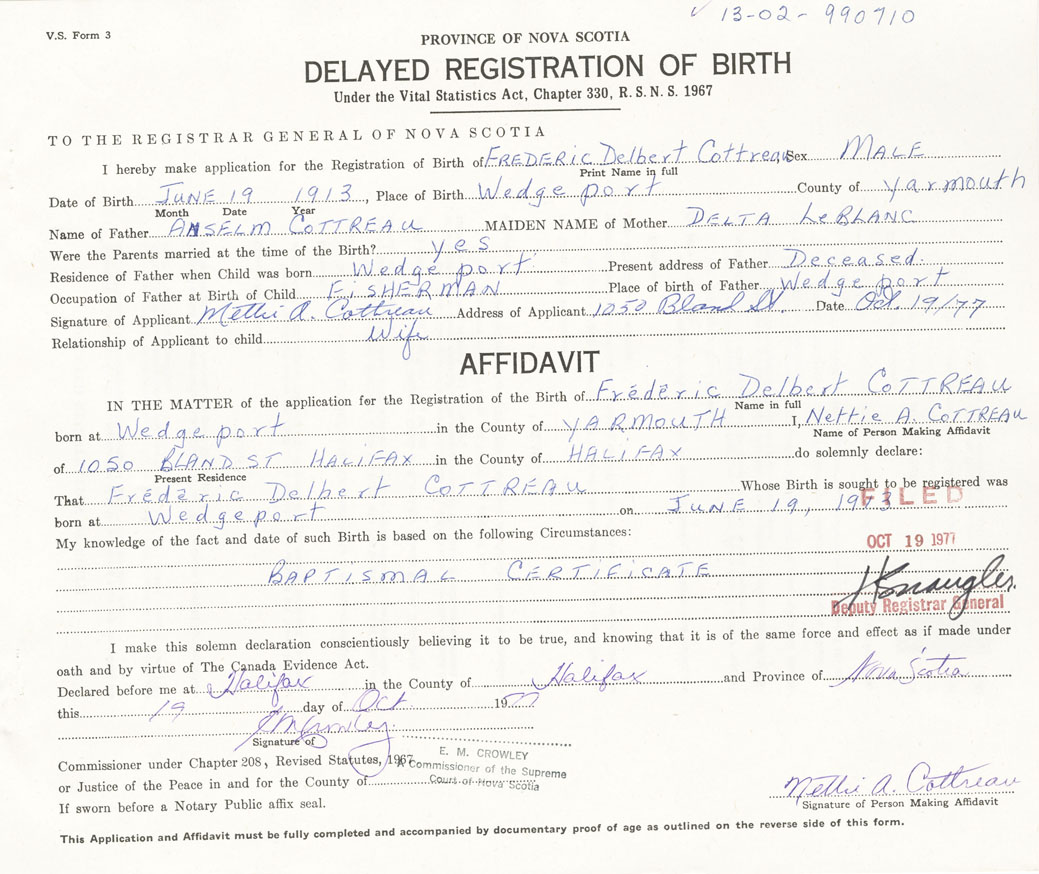 ✓ 13-02-990710
V.S. Form 3
PROVINCE OF NOVA SCOTIA
DELAYED REGISTRATION OF BIRTH
Under the Vital Statistics Act, Chapter 330, R.S.N.S. 1967
TO THE REGISTRAR GENERAL OF NOVA SCOTIA
I hereby make application for the Registration of Birth of FREDERIC Delbert Cottreau Sex MALE
Print Name in full
Date of Birth JUNE 19 1913, Place of Birth Wedgeport County of Yarmouth
Month Date Year
Name of Father ANSELM COTTREAU MAIDEN NAME of Mother DELTA LeBLANC
Were the Parents married at the time of the Birth? yes
Residence of Father when Child was born Wedgeport Present address of Father Deceased.
Occupation of Father at Birth of Child FiSHERMAN Place of birth of Father Wedgeport
Signature of Applicant Nettie A. Cottreau Address of Applicant 1050 Bland St, Date Oct. 19/77
Relationship of Applicant to child Wife
AFFIDAVIT
IN THE MATTER of the application for the Registration of the Birth of Fréderic Delbert COTTREAU
Name in full
born at Wedgeport in the County of YARMOUTH I, Nettie A. COTTREAU
Name of Person Making Affidavit
of 1050 BLAND ST HALIFAX in the County of HALIFAX do solemnly declare:
Present Residence
That Fréderic Delbert COTTREAU Whose Birth is sought to be registered was
born at Wedgeport on JUNE 19, 1913
FILED
My knowledge of the fact and date of such Birth is based on the following Circumstances:
OCT 19 1977
BAPTISMAL CERTIFICATE
Deputy Registrar General
I make this solemn declaration conscientiously believing it to be true, and knowing that it is of the same force and effect as if made under
oath and by virtue of The Canada Evidence Act.
Declared before me at Halifax in the County of Halifax and Province of Nova Scotia
this 19 day of Oct 1977
EMCrowley
Signature of
Commissioner under Chapter 208, Revised Statutes, 1967
E. M. CROWLEY
A Commissioner of the Supreme
Court of Nova Scotia
or Justice of the Peace in and for the County of
If sworn before a Notary Public affix seal.
Nettie A. Cottreau
Signature of Person Making Affidavit
This Application and Affidavit must be fully completed and accompanied by documentary proof of age as outlined on the reverse side of this form.